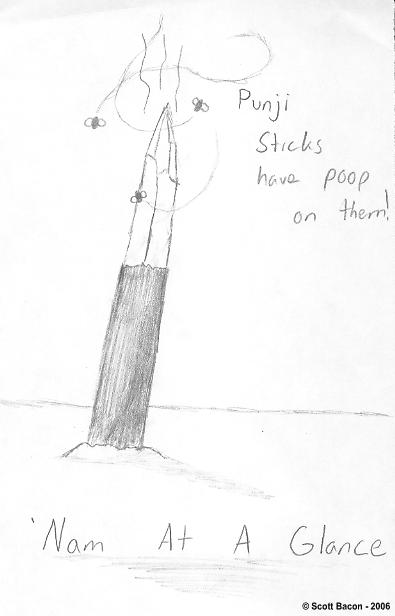 Punji
Sticks
have poop
on them!
'Nam At A Glance
© Scott Bacon - 2006